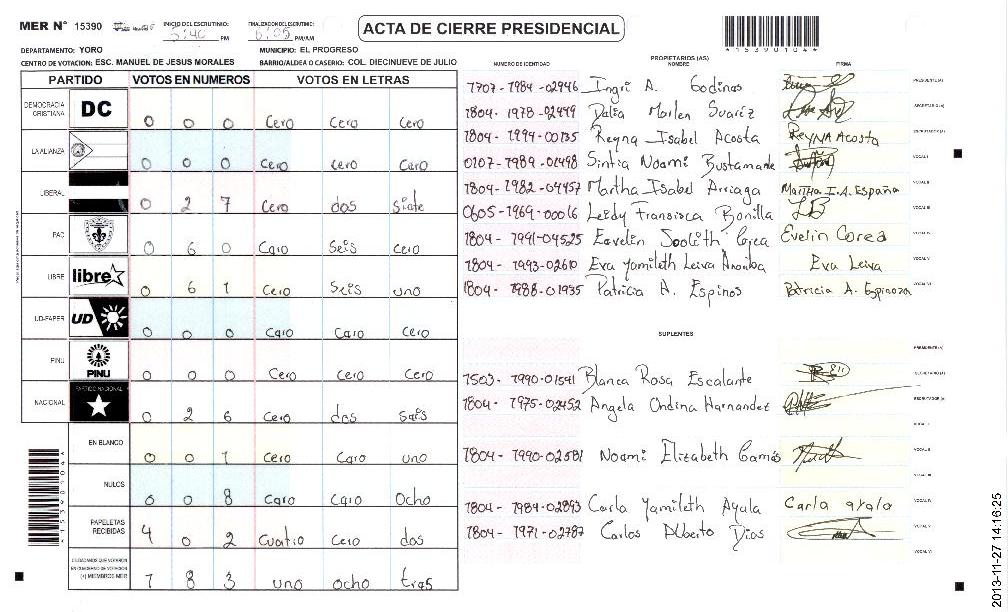 MER N° 15390 INICIO DEL ESCRUTINIO: 5:40 PM FINALIZACION DEL ESCRUTINIO: PM/AM ACTA DE CIERRE PRESIDENCIAL
*15390104*
DEPARTAMENTO: YORO MUNICIPIO: EL PROGRESO
CENTRO DE VOTACION: ESC. MANUEL DE JESUS MORALES BARRIO/ALDEA O CASERIO: COL. DIECINUEVE DE JULIO
PARTIDO VOTOS EN NUMEROS VOTOS EN LETRAS
DEMOCRACIA CRISTIANA DC 0 0 0 Cero Cero Cero
LA ALIANZA 0 0 0 Cero Cero Cero
LIBERAL 0 2 7 Cero dos siete
PAC 0 6 0 Cero Seis Cero
LIBRE libre 0 6 1 Cero Seis uno
UD-FAPER UD 0 0 0 Cero Cero Cero
PINU PINU 0 0 0 Cero Cero Cero
NACIONAL PARTIDO NACIONAL 0 2 6 Cero dos Seis
EN BLANCO 0 0 1 Cero Cero uno
NULOS 0 0 8 Cero Cero Ocho
PAPELETAS RECIBIDAS 4 0 2 Cuatro Cero dos
CIUDADANOS QUE VOTARON EN CUADERNO DE VOTACION (+) MIEMBROS MER 1 8 3 uno ocho tres
NUMERO DE IDENTIDAD PROPIETARIOS (AS) NOMBRE FIRMA
1707-1984-02946 Ingri A. Godinas PRESIDENTE (A)
1804-1978-02449 Dalia Marlen Suaréz SECRETARIO (A)
1804-1994-00135 Reyna Isabel Acosta REYNA Acosta ESCRUTADOR (A)
0107-1989-01498 Sintia Noami Bustamante VOCAL I
1804-1982-04457 Martha Isabel Arriaga Martha I.A. España VOCAL II
0605-1969-00016 Leidy Fransisca Bonilla LB VOCAL III
1804-1991-04525 Eavelin Evelin Corea VOCAL IV
1804-1993-02610 Eva Yamileth Leiva Eva Leiva VOCAL V
1804-1988-01935 Patricia A. Espinos Patricia A. Espinoza VOCAL VI
SUPLENTES
PRESIDENTE (A)
1503-1990-01541 Blanca Rosa Escalante SECRETARIO (A)
1804-1975-02452 Angela Ondina Hernandez ESCRUTADOR (A)
VOCAL I
1804-1990-02581 Noami Elizabeth VOCAL II
VOCAL III
1804-1984-02893 Carla Yamileth Ayala Carla ayala VOCAL IV
1804-1971-02787 Carlos Alberto Dias VOCAL V
VOCAL VI
2013-11-27 14:16:25